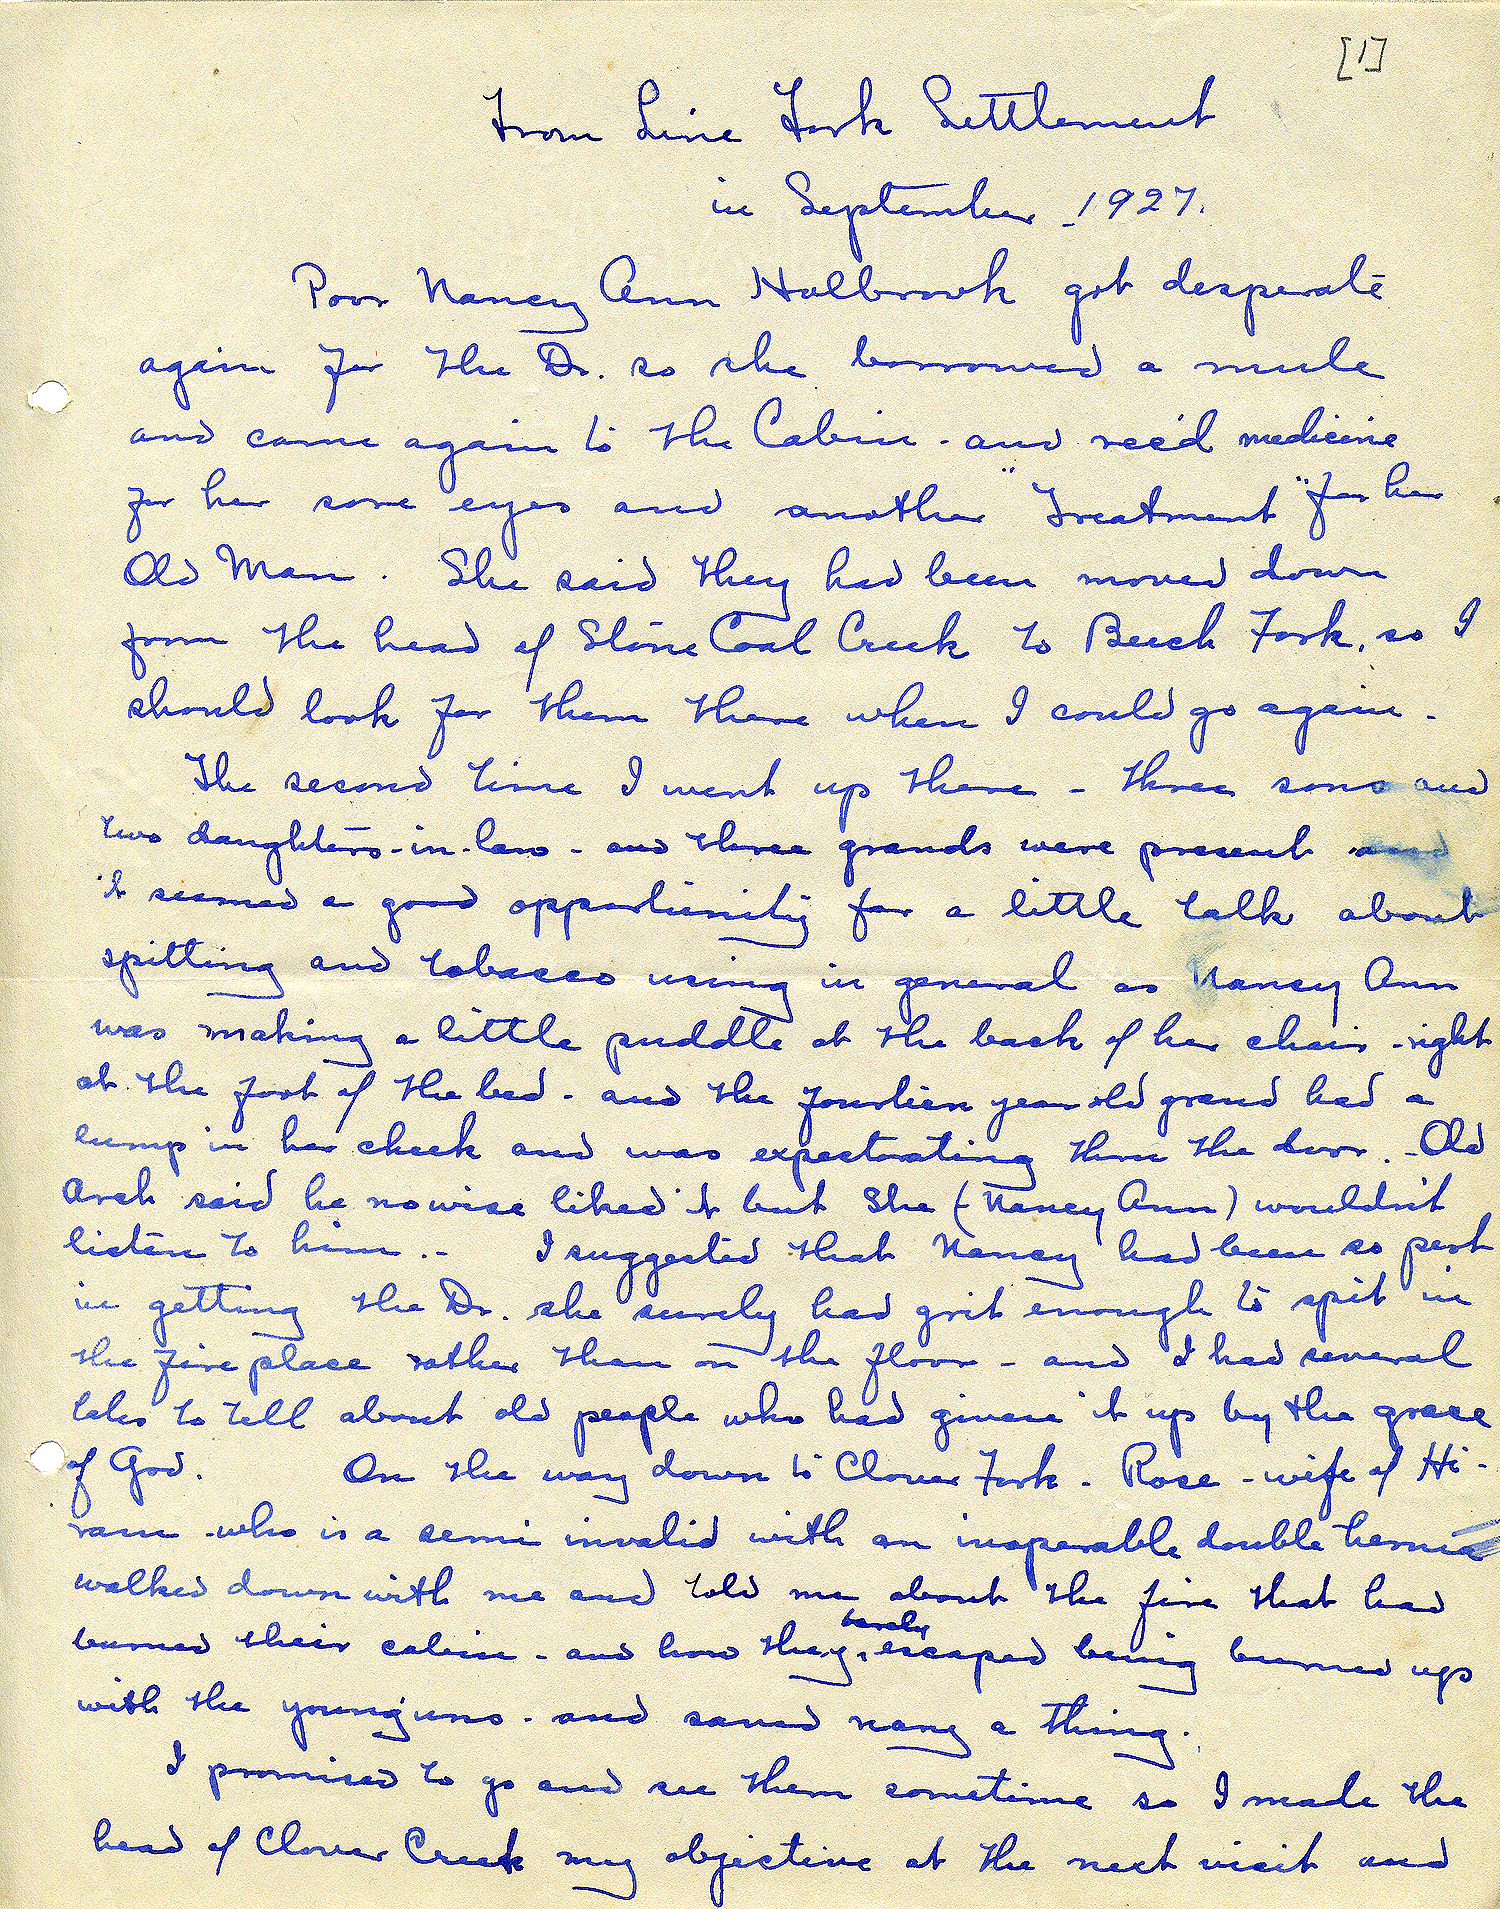 [1]
From Line Fork Settlement
in September 1927.
Poor Nancy Ann Holbrook got desperate
again for the Dr. so she borrowed a mule
and came again to the Cabin - and rec'd medicine
for her sore eyes and another "Treatment" for her
Old Man. She said they had been moved down
from the head of Stone Coal Creek to Beech Fork, so I
should look for them there when I could go again -
The second time I went up there - three sons and
two daughters-in-law - and three grands were present and
it seemed a good opportunity for a little talk about
spitting and tobacco using in general as Nancy Ann
was making a little puddle at the back of her chair - right
at the foot of the bed - and the fourteen year old grand had a
lump in her cheek and was expectorating thru the door. - Old
Arch said he nowise liked it but she (Nancy Ann) wouldn't
listen to him. - I suggested that Nancy had been so pert
in getting the Dr. she surely had grit enough to spit in
the fire place rather than on the floor - and I had several
tales to tell about old people who had given it up by the grace
of God. On the way down to Clover Fork - Rose - wife of Hi-
ram - who is a semi invalid with an inoperable double hernia
walked down with me and told me about the fire that had
burned their cabin - and how they barely escaped being burned up
with the young'uns - and saved nary a thing.
I promised to go and see them sometime so I made the
head of Clover Creek my objective at the next visit and